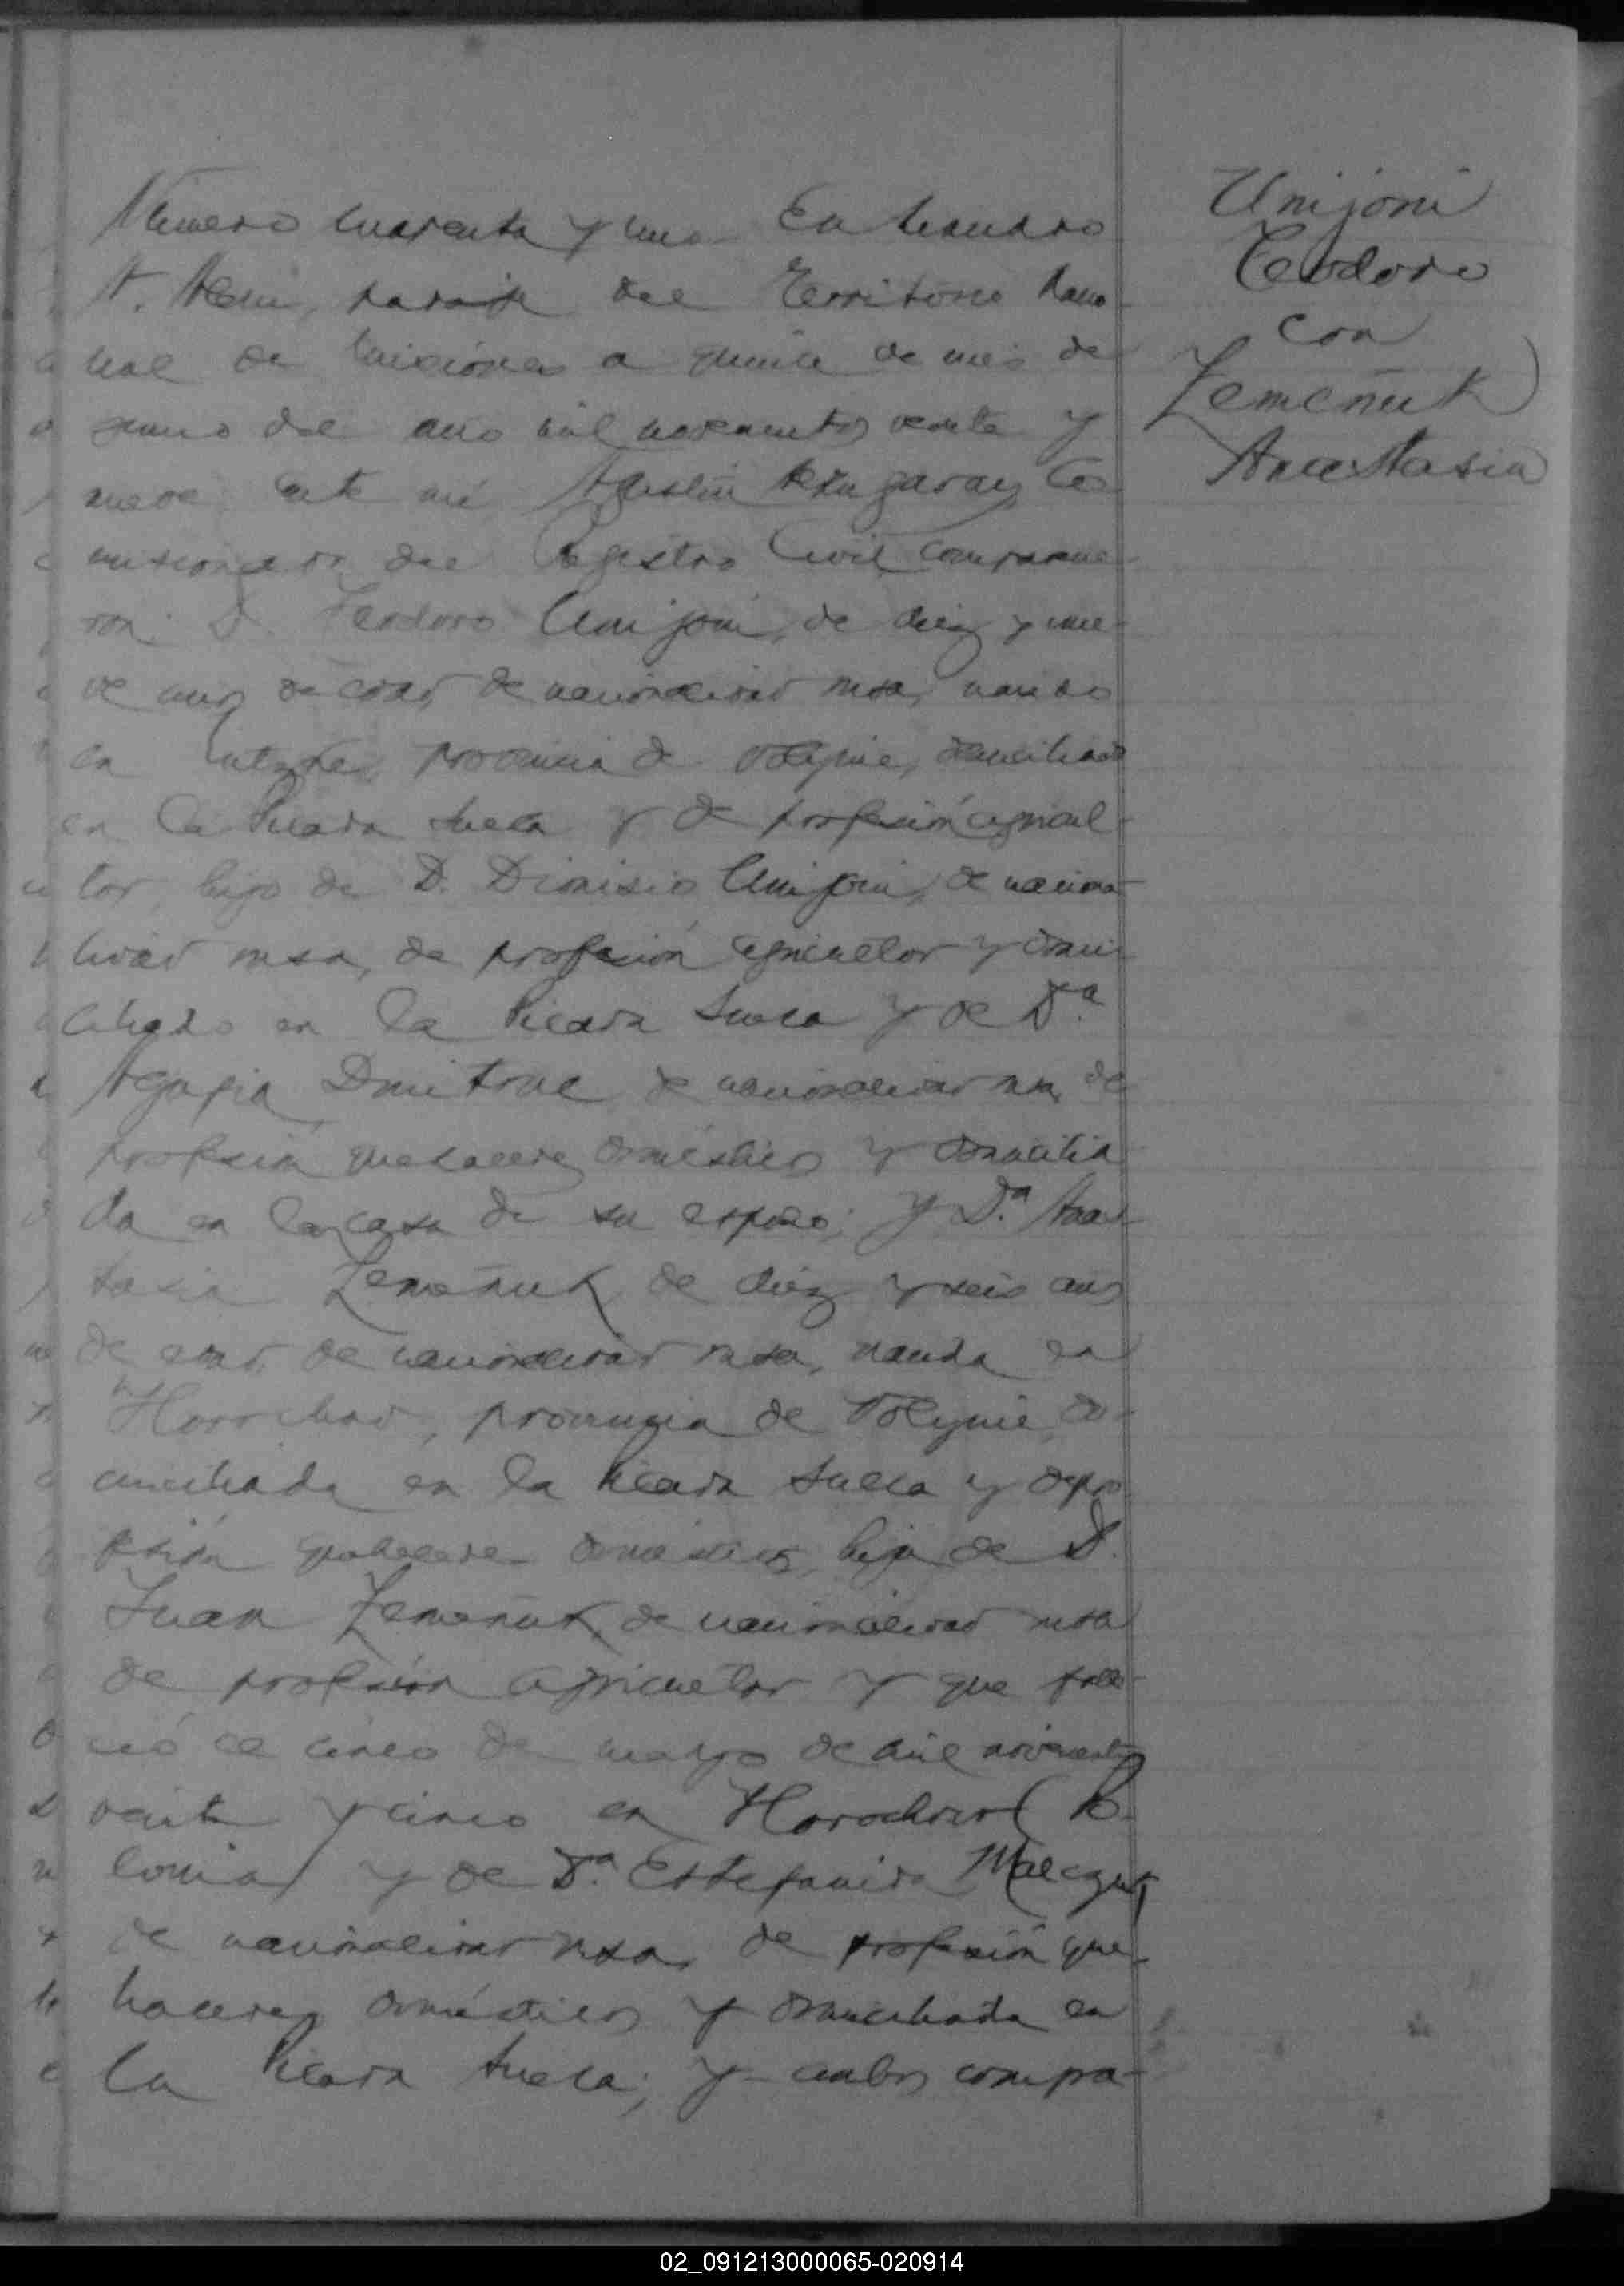 Número cuarenta y uno En Leandro
N. Alem, paraje del Territorio Nacio-
nal de Misiones a quince de mes de
junio del año mil novecientos veinte y
nueve ante mí Agustín Co-
misionado del Registro Civil comparecie-
ron: D. Teodoro Unijoni, de diez y nue-
ve años de edad, de nacionalidad rusa, nacido
en provincia de Volynie, domiciliado
en la Picada Sueca y de profesión agricul-
tor, hijo de D. Dionisio Unijoni, de naciona-
lidad rusa, de profesión agricultor y domi-
ciliado en la Picada Sueca y de Da.
Agafia Dmitruc de nacionalidad rusa, de
profesión quehaceres domésticos y domicilia-
da en la casa de su esposo; y Da. Anas-
tasia Zemeñuk de diez y seis años
de edad, de nacionalidad rusa, nacida en
Horochow, provincia de Volynie, do-
miciliada en la Picada Sueca y de pro-
fesión quehaceres domésticos, hija de D.
Juan Zemeñuk, de nacionalidad rusa
de profesión agricultor y que falle-
ció el cinco de mayo de mil novecientos
veinte y cinco en Horochow (Po-
lonia) y de Da. Estefanida
de nacionalidad rusa, de profesión que-
haceres domésticos y domiciliada en
la Picada Sueca; y ambos compa-
Unijoni
Teodoro
con
Zemeñuk
Anastasia
02_091213000065-020914